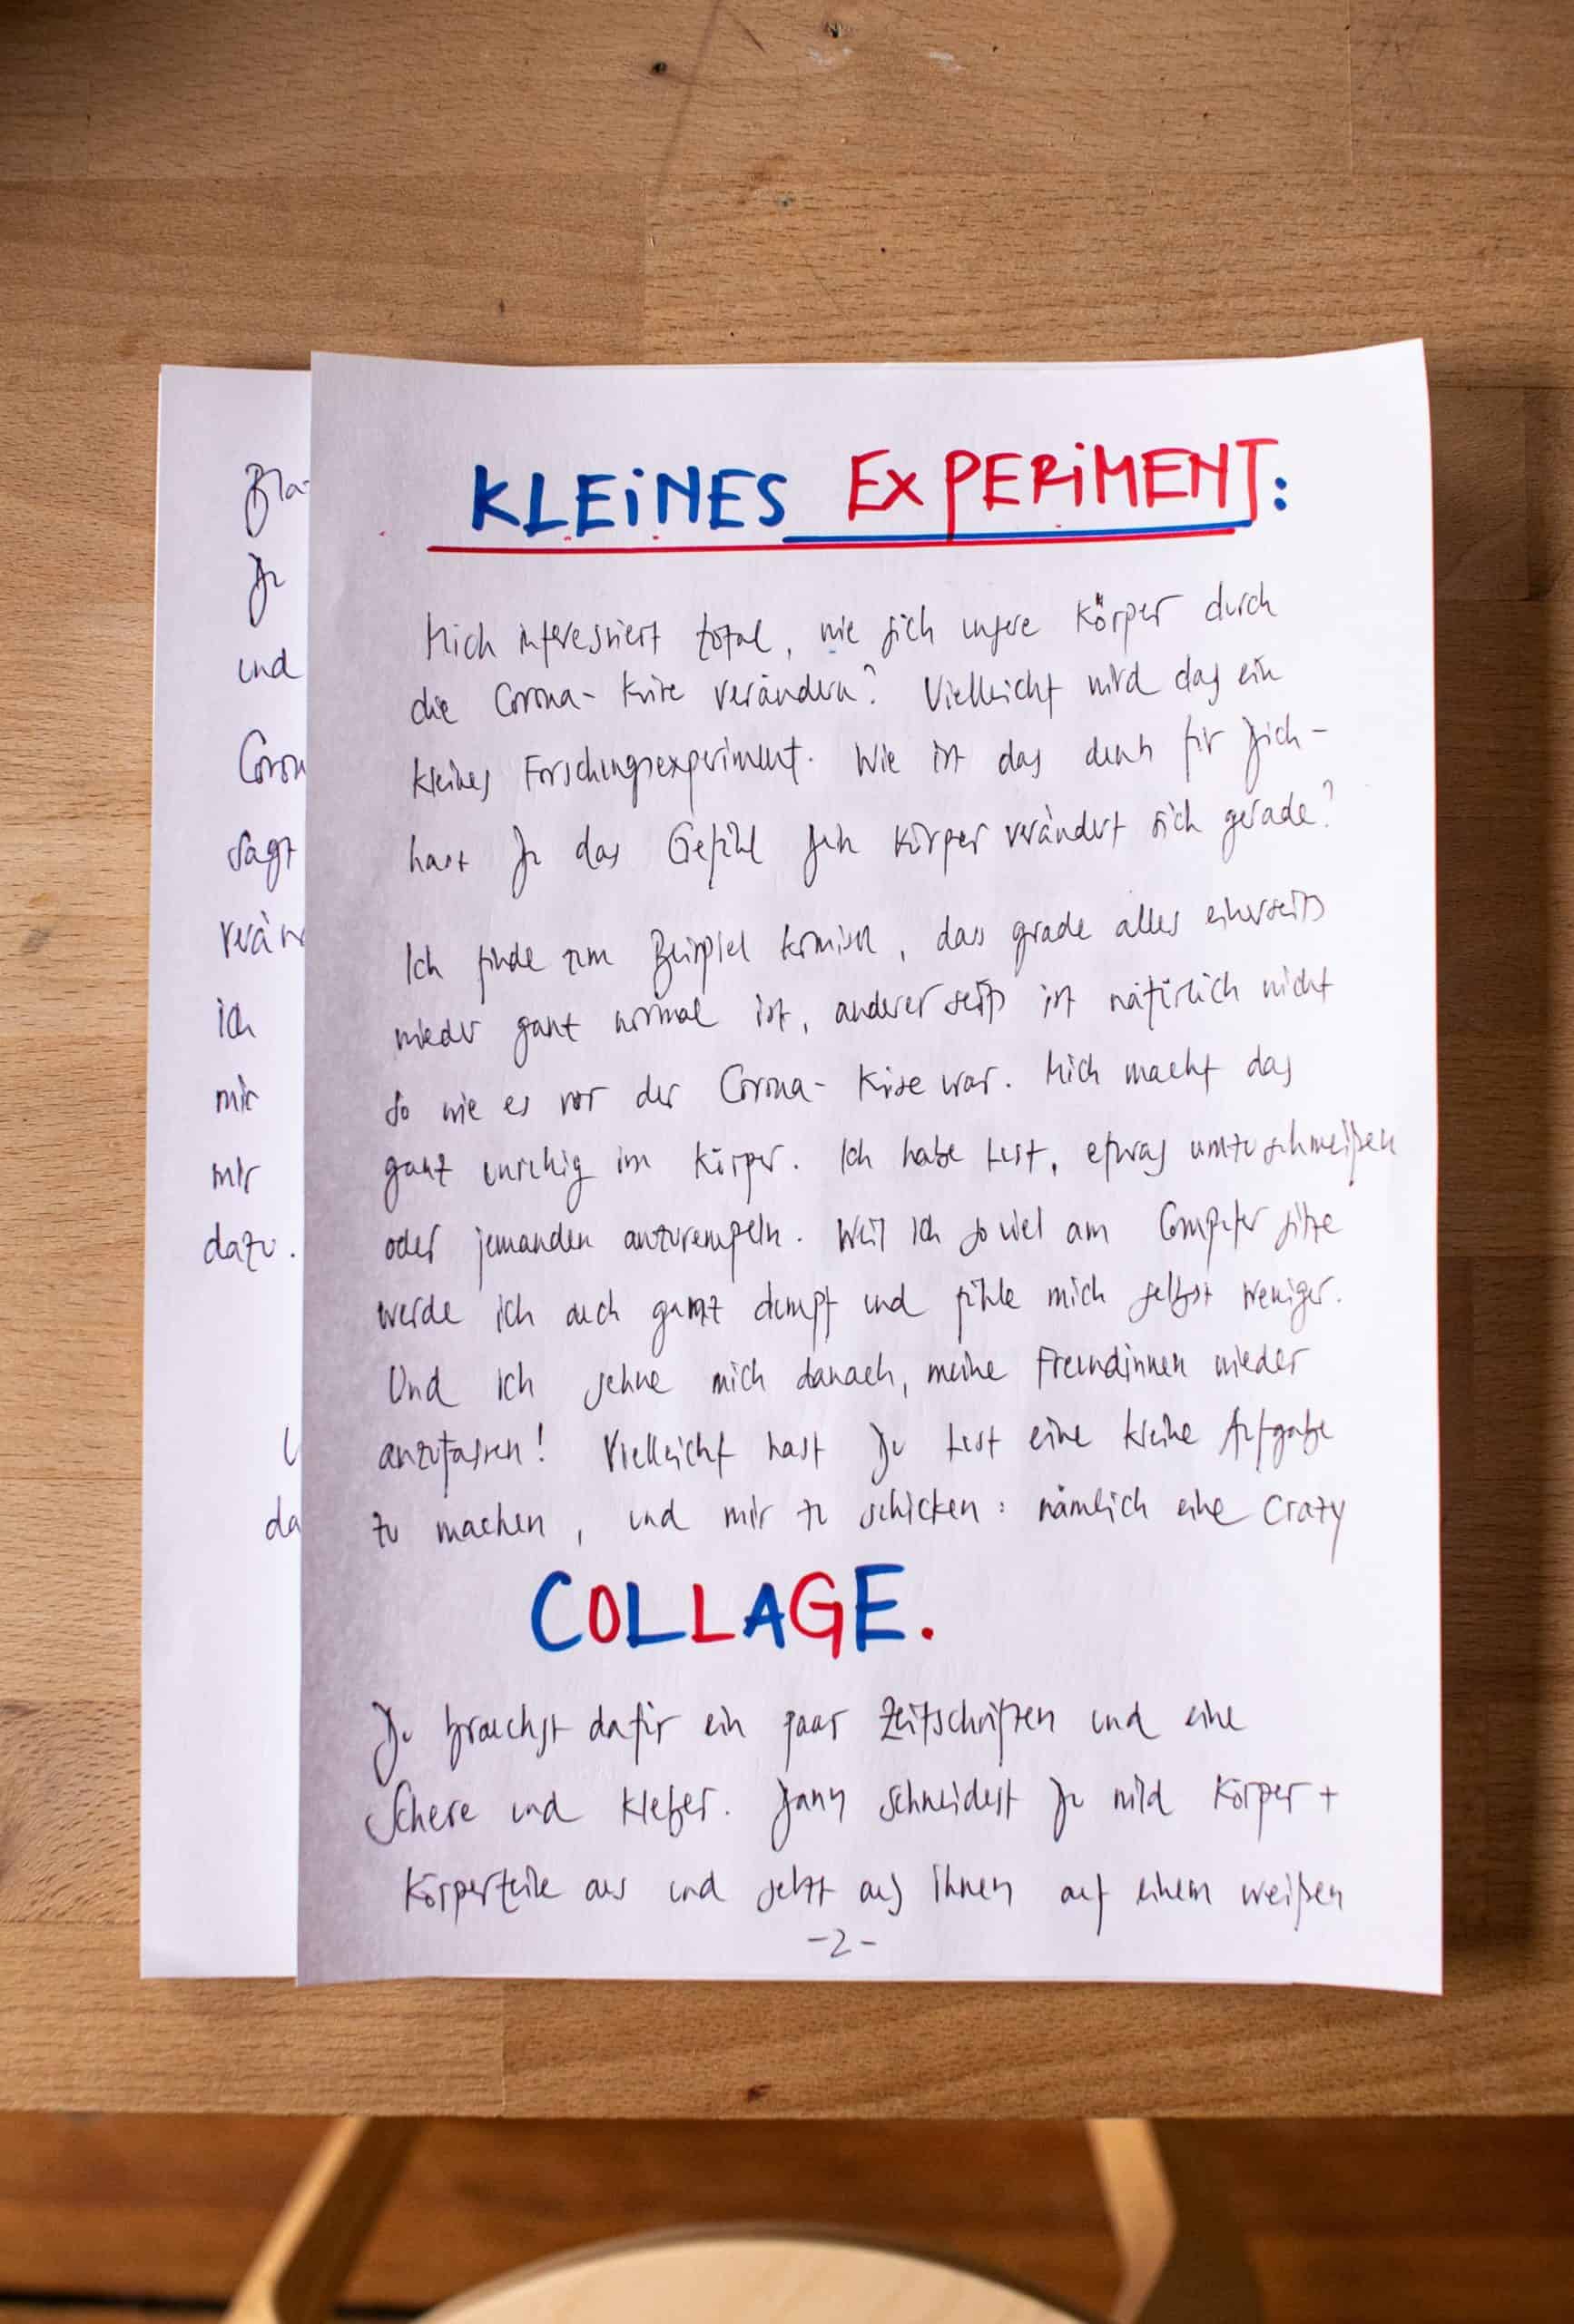 KLEINES EXPERIMENT:
Mich interessiert total, wie sich unsere Körper durch
die Corona-Krise verändern? Vielleicht wird das ein
kleines Forschungsexperiment. Wie ist das denn für Dich -
hast Du das Gefühl Dein Körper verändert sich gerade?
Ich finde zum Beispiel komisch, dass grade alles einerseits
wieder ganz normal ist, andererseits ist natürlich nicht
so wie es vor der Corona-Krise war. Mich macht das
ganz unruhig im Körper. Ich habe Lust, etwas umzuschmeißen
oder jemanden anzurempeln. Weil ich so viel am Computer sitze
werde ich auch ganz dumpf und fühle mich selbst weniger.
Und ich sehne mich danach, meine Freundinnen wieder
anzufassen! Vielleicht hast Du Lust eine kleine Aufgabe
zu machen, und mir zu schicken: nämlich eine Crazy
COLLAGE.
Du brauchst dafür ein paar Zeitschriften und eine
Schere und Kleber. Dann schneidest Du wild Körper +
Körperteile aus und setzt aus ihnen auf einem weißen
-2-
Du
und
Coron
sagt
verän
ich
mir
mir
dazu.
da